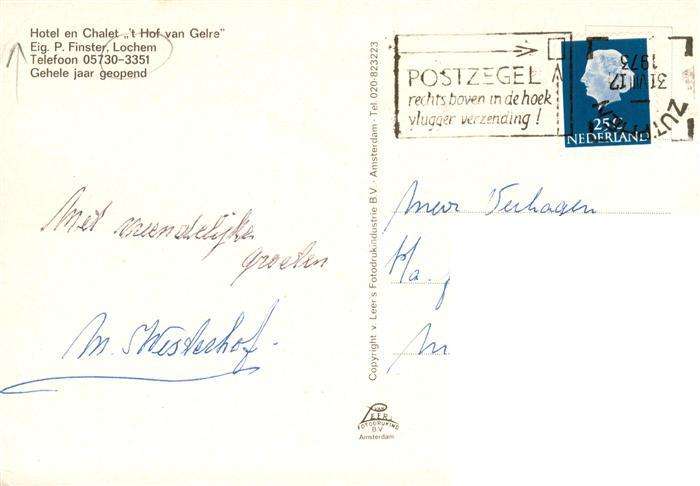 Hotel en Chalet „'t Hof van Gelre”
Eig. P. Finster, Lochem
Telefoon 05730-3351
Gehele jaar geopend
Met vriendelijke
groeten
M. Westerhof.
Copyright v. Leer's Fotodrukindustrie B.V. - Amsterdam - Tel. 020-823223
VAN
LEER
FOTODRUKIND
B.V.
Amsterdam
POSTZEGEL
rechts boven in de hoek
vlugger verzending!
25c
NEDERLAND
ZUTPHEN
31 VII 17
1973
Mevr Verhagen
P/a.